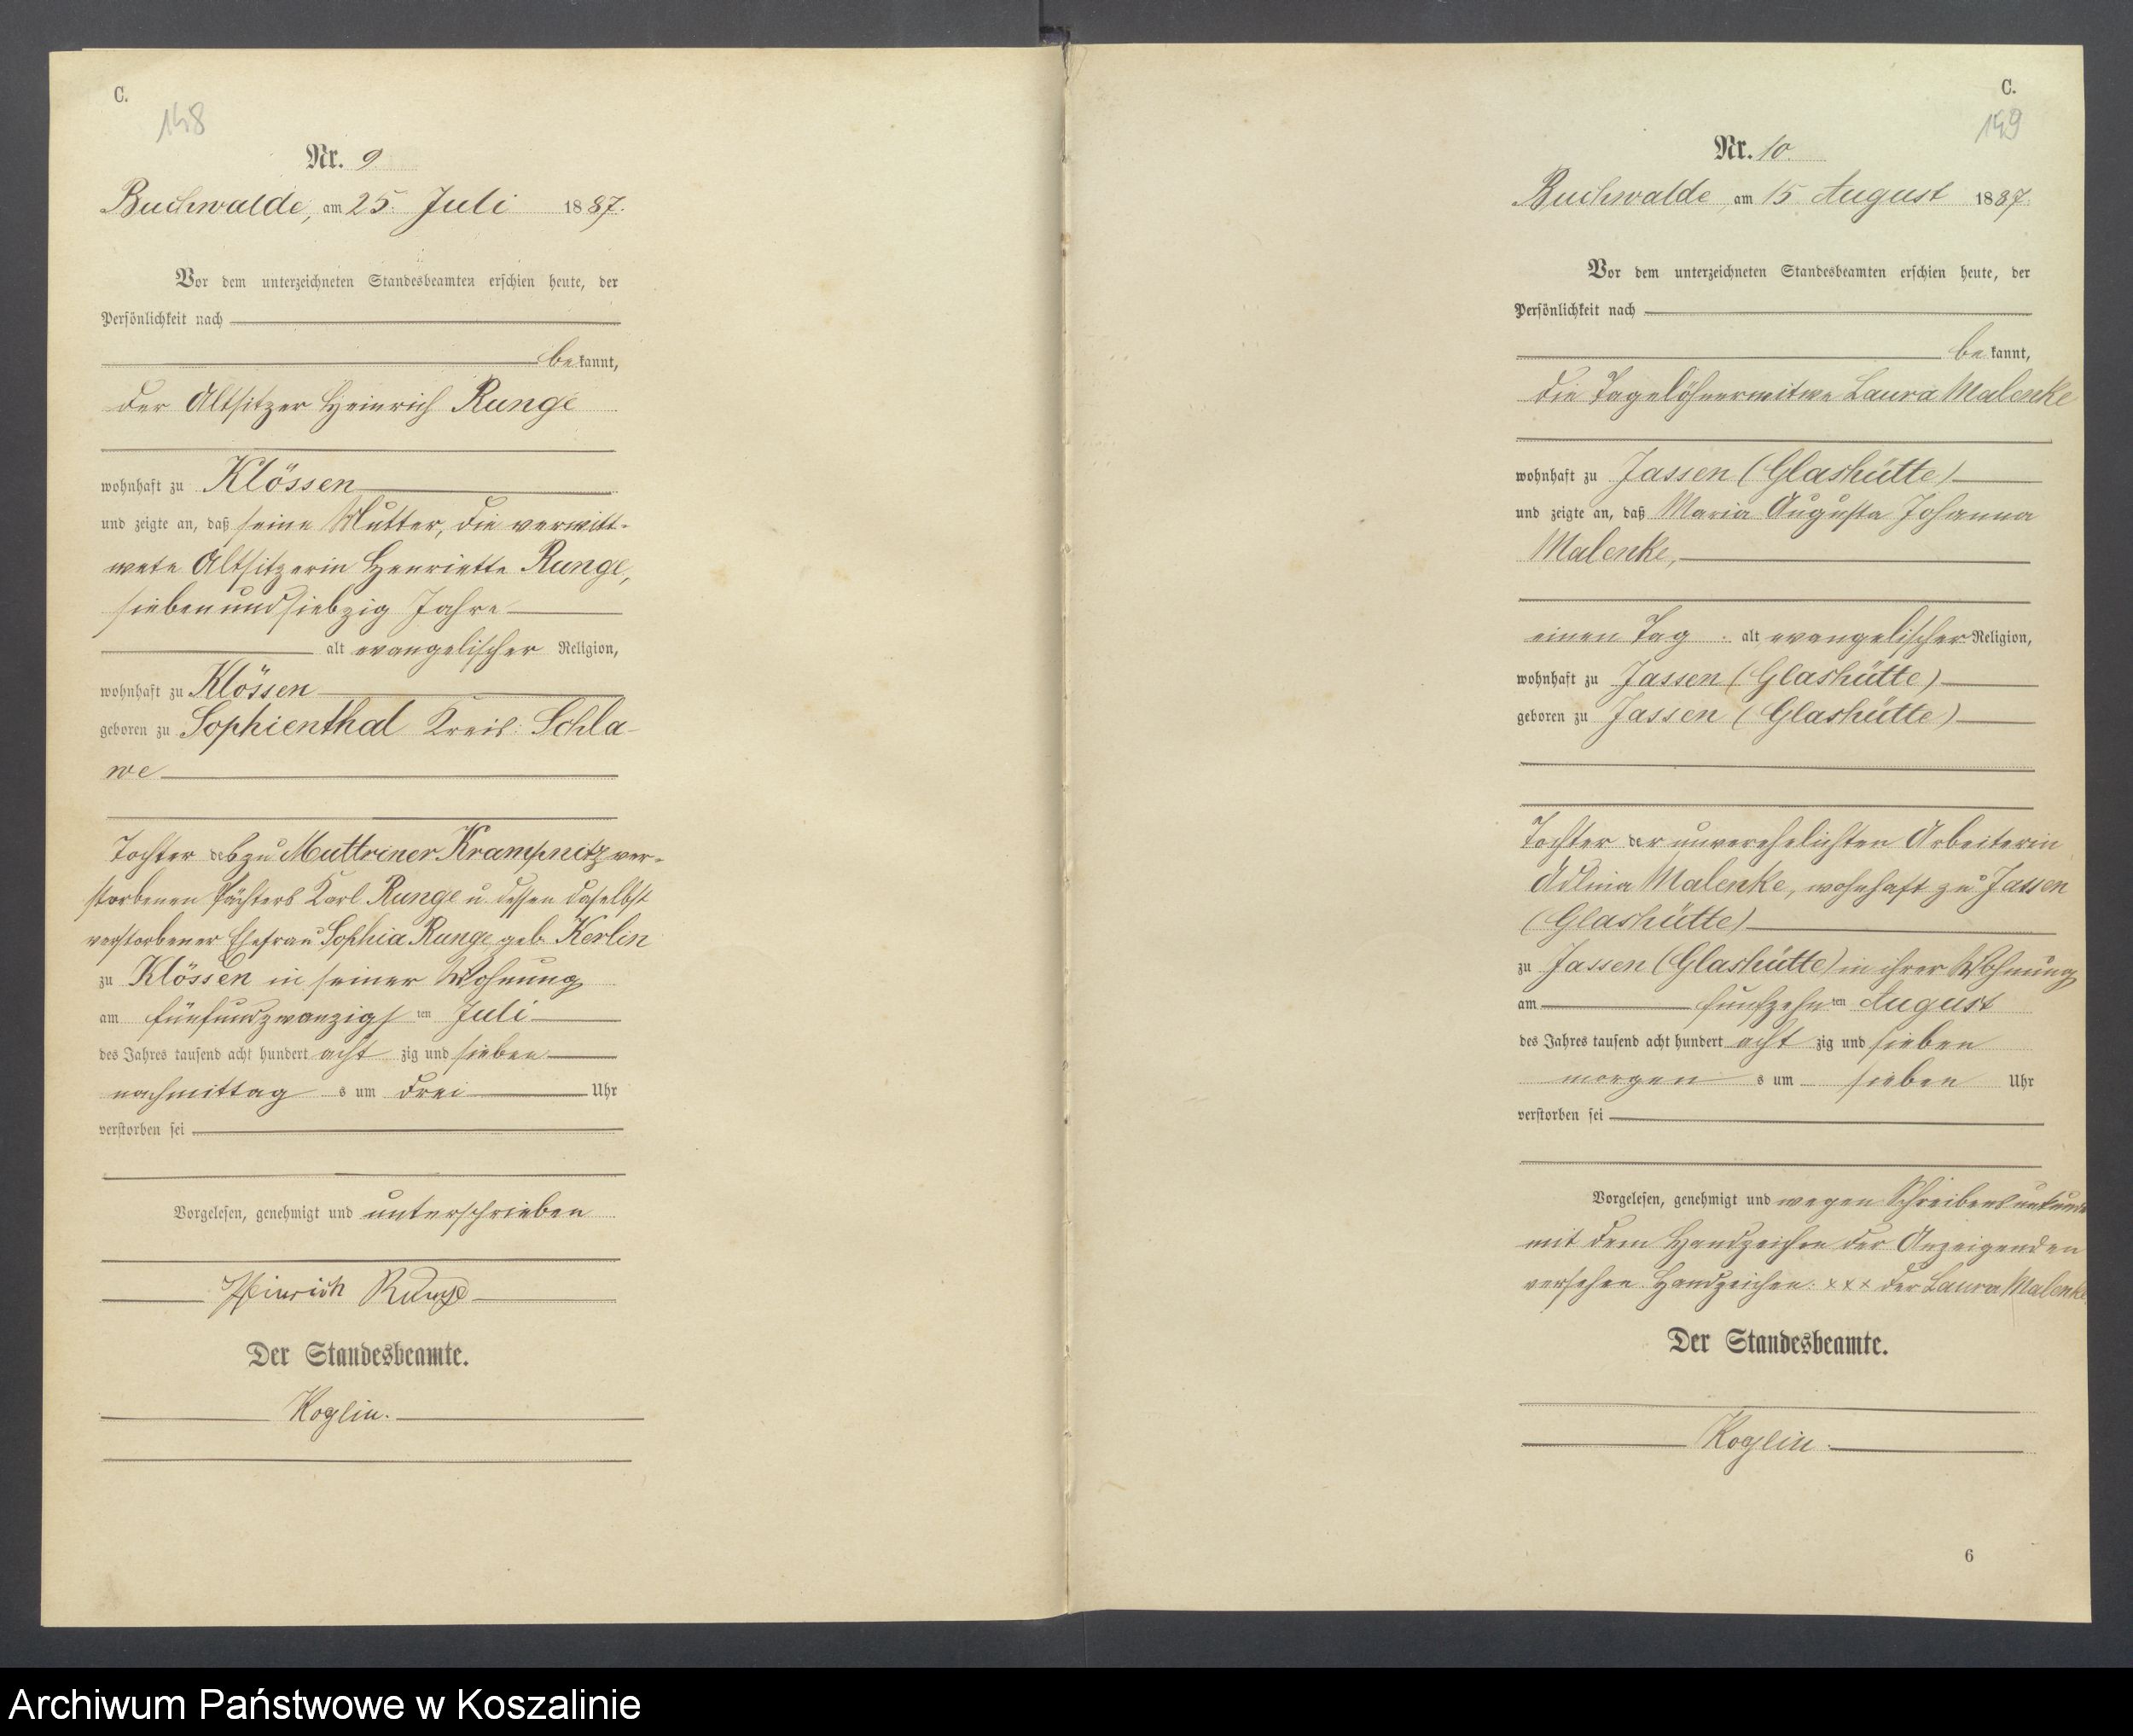 C.
148
Nr. 9
Buchwalde, am 25. Juli 1887.
Vor dem unterzeichneten Standesbeamten erschien heute, der
Persönlichkeit nach
bekannt,
der Altsitzer Heinrich Runge
wohnhaft zu Klössen
und zeigte an, daß seine Mutter, die verwitt-
wete Altsitzerin Henriette Runge,
siebenundsiebzig Jahre
alt evangelischer Religion,
wohnhaft zu Klössen
geboren zu Sophienthal Kreis: Schla-
we
Tochter des zu Muttriner Krampnitz ver-
storbenen Pächters Karl Runge u. dessen daselbst
verstorbener Ehefrau Sophia Runge geb. Kerlin
zu Klössen in seiner Wohnung
am fünfundzwanzigsten Juli
des Jahres tausend acht hundert achtzig und sieben
nachmittags um drei Uhr
verstorben sei
Vorgelesen, genehmigt und unterschrieben
Heinrich Runge
Der Standesbeamte.
Koglin.
C.
149
Nr. 10.
Buchwalde, am 15 August 1887.
Vor dem unterzeichneten Standesbeamten erschien heute, der
Persönlichkeit nach
bekannt,
die Tagelöhnerwitwe Laura Malenke
wohnhaft zu Jassen (Glashütte)
und zeigte an, daß Maria Augusta Johanna
Malenke,
einen Tag alt evangelischer Religion,
wohnhaft zu Jassen (Glashütte)
geboren zu Jassen (Glashütte)
Tochter der unverehelichten Arbeiterin
Malenke, wohnhaft zu Jassen
(Glashütte)
zu Jassen (Glashütte) in ihrer Wohnung
am funfzehnten August
des Jahres tausend acht hundert achtzig und sieben
morgens um sieben Uhr
verstorben sei
Vorgelesen, genehmigt und wegen Schreibensunkunde
mit dem Handzeichen der Anzeigenden
versehen Handzeichen: xxx der Laura Malenke
Der Standesbeamte.
Koglin.
6
Archiwum Państwowe w Koszalinie